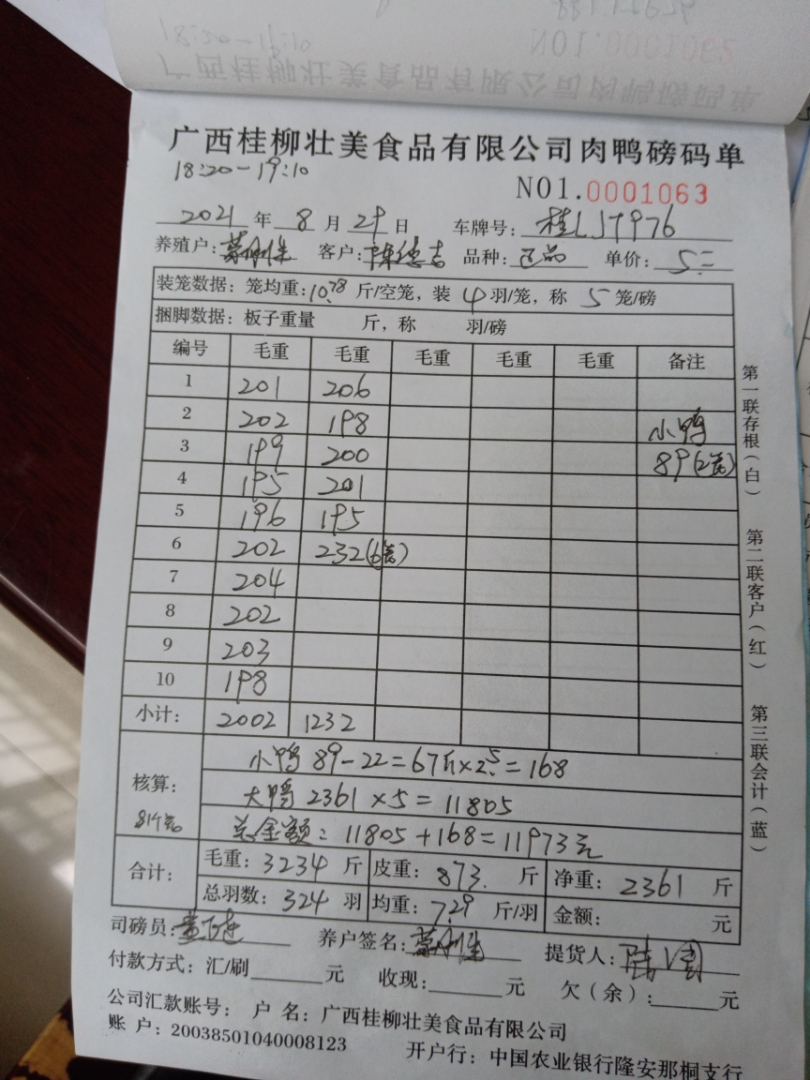 广西桂柳壮美食品有限公司肉鸭磅码单
18:20-19:10
NO1.0001063
2021 年 8 月 29 日 车牌号: 桂LJ7976
养殖户: 客户: 陈德吉 品种: 正品 单价: 5元
装笼数据: 笼均重: 10.78 斤/空笼, 装 4 羽/笼, 称 5 笼/磅
捆脚数据: 板子重量 斤, 称 羽/磅
编号 毛重 毛重 毛重 毛重 毛重 备注
1 201 206
2 202 198 小鸭
3 199 200 89(2笼)
4 195 201
5 196 195
6 202 232(6笼)
7 204
8 202
9 203
10 198
小计: 2002 1232
核算:
81个笼
小鸭 89-22=67斤×2.5=168
大鸭 2361×5=11805
总金额: 11805+168=11973元
合计:
毛重: 3234 斤 皮重: 873. 斤 净重: 2361 斤
总羽数: 324 羽 均重: 7.29 斤/羽 金额: 元
司磅员: 养户签名: 提货人:
付款方式: 汇/刷 元 收现: 元 欠(余): 元
公司汇款账号: 户 名: 广西桂柳壮美食品有限公司
账 户: 20038501040008123 开户行: 中国农业银行隆安那桐支行
第一联存根(白) 第二联客户(红) 第三联会计(蓝)